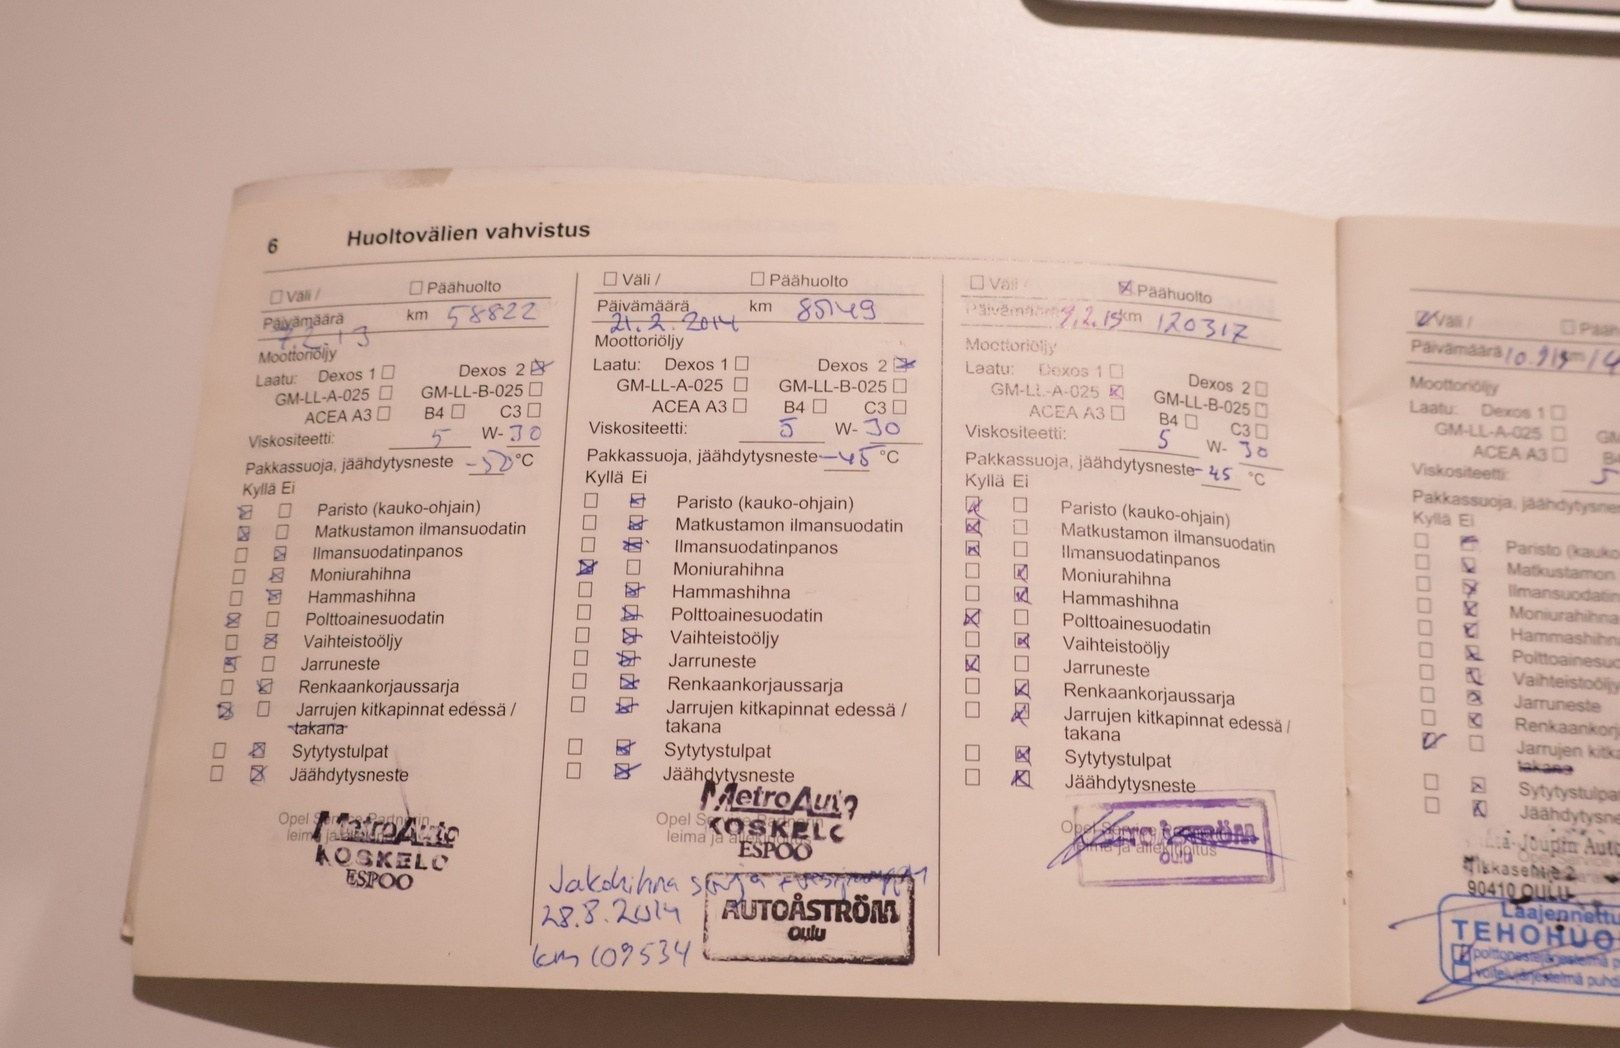 6 Huoltovälien vahvistus
Väli / Päähuolto
Päivämäärä km 58822
Moottoriöljy
Laatu: Dexos 1 Dexos 2
GM-LL-A-025 GM-LL-B-025
ACEA A3 B4 C3
Viskositeetti: 5 W- 30
Pakkassuoja, jäähdytysneste °C
Kyllä Ei
Paristo (kauko-ohjain)
Matkustamon ilmansuodatin
Ilmansuodatinpanos
Moniurahihna
Hammashihna
Polttoainesuodatin
Vaihteistoöljy
Jarruneste
Renkaankorjaussarja
Jarrujen kitkapinnat edessä /
takana
Sytytystulpat
Jäähdytysneste
Opel Service Partnerin
leima ja
MetroAuto
KOSKELO
ESPOO
Väli / Päähuolto
Päivämäärä km 85149
21.2.2014
Moottoriöljy
Laatu: Dexos 1 Dexos 2
GM-LL-A-025 GM-LL-B-025
ACEA A3 B4 C3
Viskositeetti: 5 W- 30
Pakkassuoja, jäähdytysneste -45 °C
Kyllä Ei
Paristo (kauko-ohjain)
Matkustamon ilmansuodatin
Ilmansuodatinpanos
Moniurahihna
Hammashihna
Polttoainesuodatin
Vaihteistoöljy
Jarruneste
Renkaankorjaussarja
Jarrujen kitkapinnat edessä /
takana
Sytytystulpat
Jäähdytysneste
Opel Service Partnerin
leima ja allekirjoitus
MetroAuto
KOSKELO
ESPOO
Jakohihna sarja + vesipumppu
28.8.2014
km 109534
AUTOÅSTRÖM
OULU
Väli / Päähuolto
Päivämäärä 9.2.15 km 120317
Moottoriöljy
Laatu: Dexos 1 Dexos 2
GM-LL-A-025 GM-LL-B-025
ACEA A3 B4 C3
Viskositeetti: 5 W- 30
Pakkassuoja, jäähdytysneste -45 °C
Kyllä Ei
Paristo (kauko-ohjain)
Matkustamon ilmansuodatin
Ilmansuodatinpanos
Moniurahihna
Hammashihna
Polttoainesuodatin
Vaihteistoöljy
Jarruneste
Renkaankorjaussarja
Jarrujen kitkapinnat edessä /
takana
Sytytystulpat
Jäähdytysneste
Opel Service
leima ja allekirjoitus
OULU
Väli / Pääh
Päivämäärä km
Moottoriöljy
Laatu: Dexos 1
GM-LL-A-025 GM
ACEA A3 B4
Viskositeetti: 5
Pakkassuoja, jäähdytysnes
Kyllä Ei
Paristo (kauko
Matkustamon
Ilmansuodatin
Moniurahihna
Hammashihna
Polttoainesuo
Vaihteistoöljy
Jarruneste
Renkaankorj
Jarrujen kitka
takana
Sytytystulpa
Jäähdytysne
Joupin Auto
90410 OULU
Laajennettu
TEHOHUO
polttopestejärjestelmä p
voitelujärjestelmä puhd